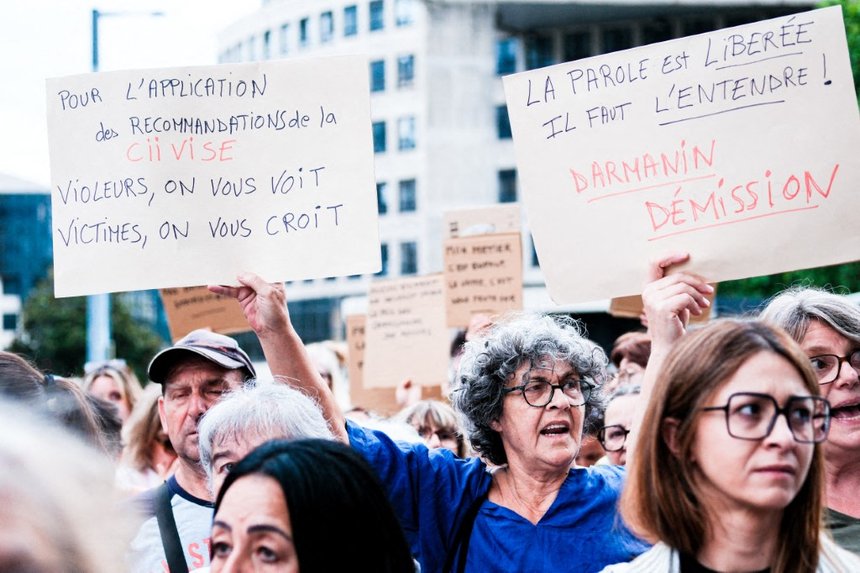 POUR L'APPLICATION
des RECOMMANDATIONS de la
CIIVISE
VIOLEURS, ON VOUS VOIT
VICTIMES, ON VOUS CROIT
LA PAROLE EST LIBERÉE
IL FAUT L'ENTENDRE !
DARMANIN
DÉMISSION